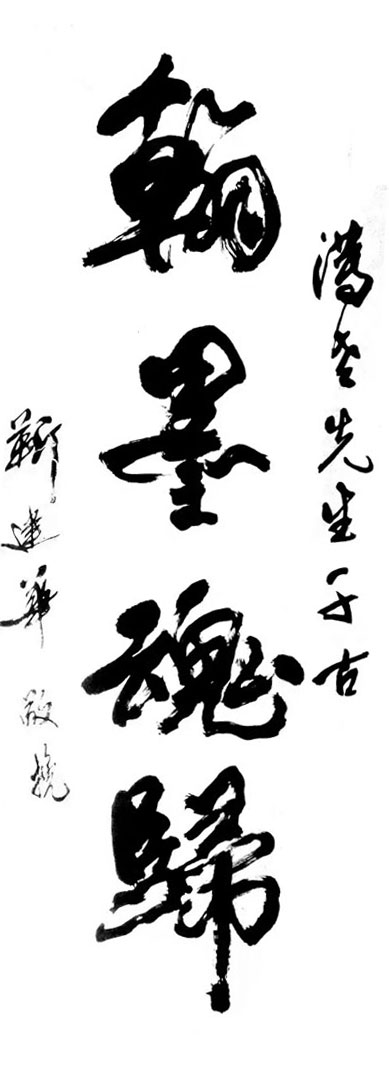 老先生千古
翰墨魂歸
靳達華 敬挽